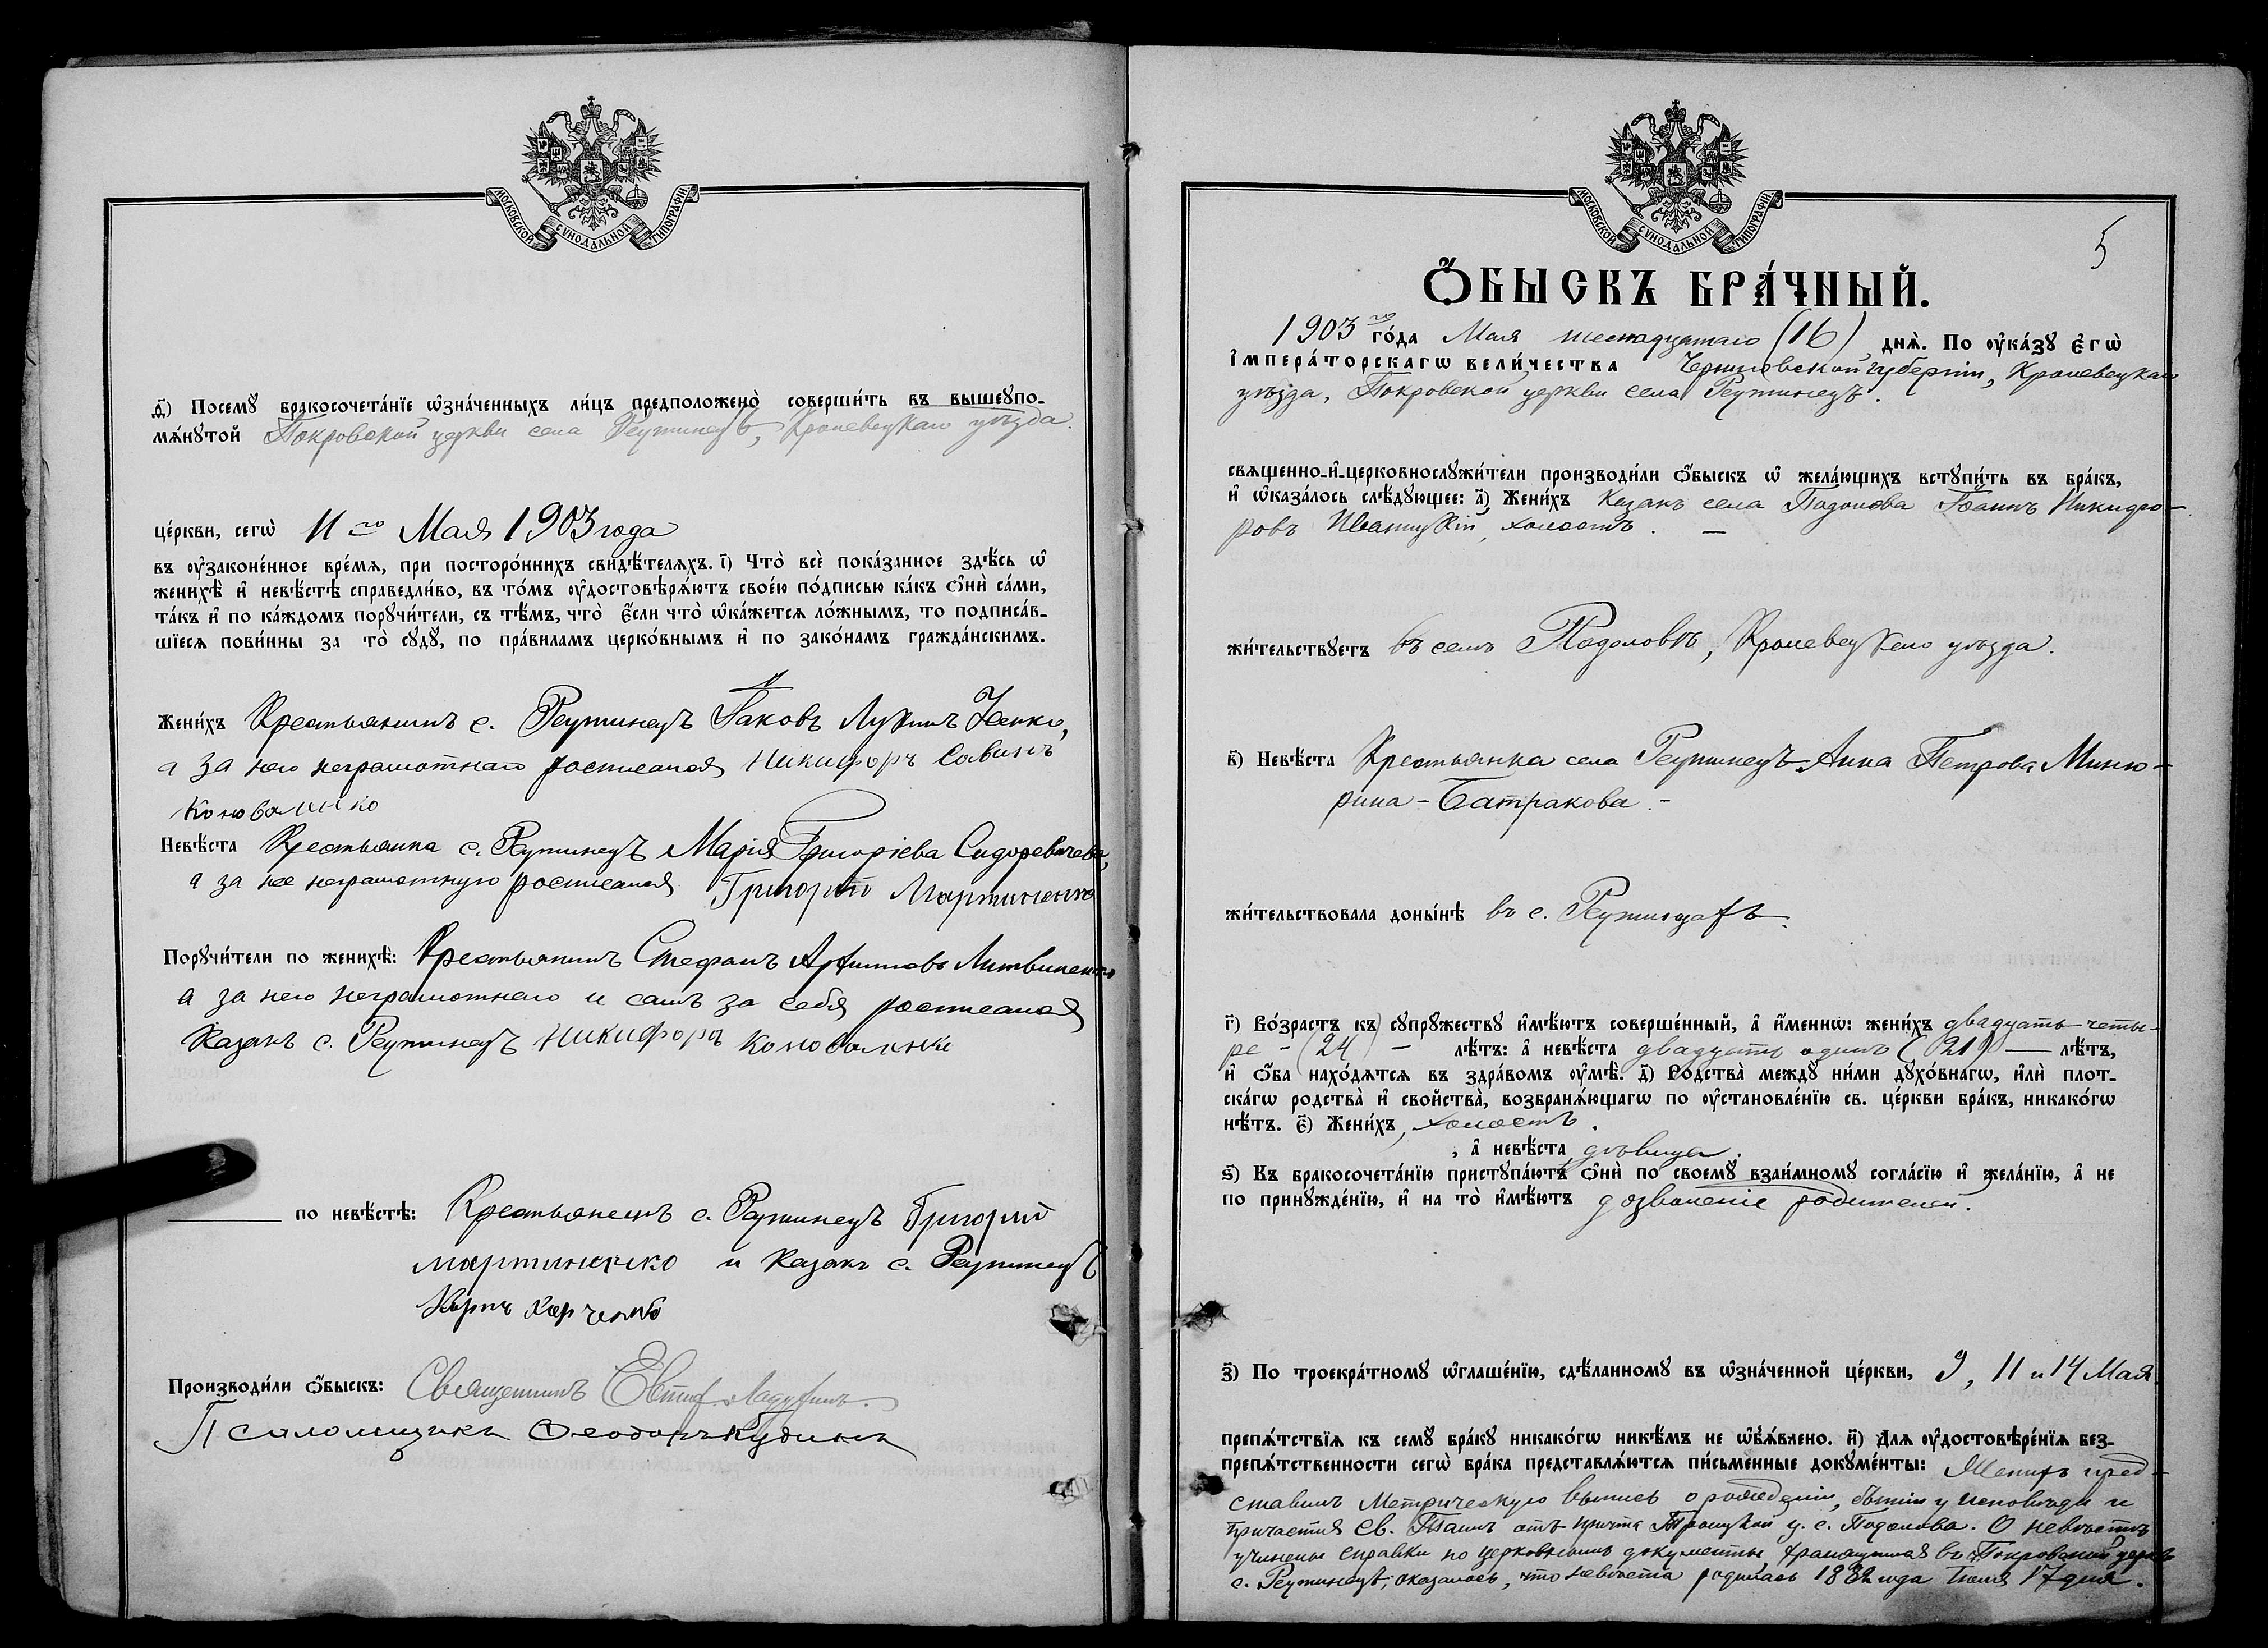 МОСКОВСКОЙ СѴНОДАЛЬНОЙ ТИПОГРАФІИ
д҃) Посемꙋ бракосочета́нїе ѡ҆зна́ченныхъ ли́цъ предположено̀ соверши́ть въ вышеꙋпо-
мѧ́нꙋтой Покровской церкви села Реутинецъ, Кролевецкаго уѣзда.
це́ркви, сегѡ̀ 11го Мая 1903 года
въ ᲂу҆законе́нное вре́мѧ, при посторо́ннихъ свидѣ́телѧхъ. і҃) Что̀ всѐ пока́занное здѣ́сь ѡ҆
женихѣ̀ и҆ невѣ́стѣ справедли́во, въ то́мъ ᲂу҆достовѣрѧ́ютъ свое́ю по́дписью ка́къ ѻ҆нѝ са́ми,
та́къ и҆ по ка́ждомъ порꙋчи́тели, съ тѣ́мъ, что̀ є҆́сли что̀ ѡ҆ка́жетсѧ ло́жнымъ, то подписа́в-
шїесѧ пови́нны за то̀ сꙋдꙋ̀, по пра́виламъ церко́внымъ и҆ по зако́намъ гражда́нскимъ.
Жени́хъ Крестьянинъ с. Реутинецъ Іаковъ Лукинъ
а за него неграмотнаго росписался Никифоръ Савинъ
Коноваленко
Невѣ́ста Крестьянка с. Реутинецъ Марія Григоріева Сидоревичева,
а за нее неграмотную росписался Григорій Мартиненко
Порꙋчи́тели по женихѣ̀: Крестьянинъ Стефанъ Литвиненко
а за него неграмотнаго и самъ за себя росписался
Казакъ с. Реутинецъ Никифоръ Коноваленко
по невѣ́стѣ: Крестьянинъ с. Реутинецъ Григорий
Мартиненко и казакъ с. Реутинецъ
Карпъ Харченко
Производи́ли ѻ҆́быскъ: Священникъ Евтиф.
Псаломщикъ Ѳеодоръ
МОСКОВСКОЙ СѴНОДАЛЬНОЙ ТИПОГРАФІИ
5
Ѻ҆́БЫСКЪ БРА́ЧНЫЙ.
1903го го́да Мая шестнадцатаго (16) днѧ̀. По ᲂу҆ка́зꙋ є҆гѡ̀
і҆мпера́торскагѡ вели́чества Черниговской губерніи, Кролевецкаго
уѣзда, Покровской церкви села Реутинецъ.
свѧщенно-и҆-церковнослꙋжи́тели производи́ли ѻ҆́быскъ ѡ҆ жела́ющихъ встꙋпи́ть въ бра́къ,
и҆ ѡ҆каза́лось слѣ́дꙋющее: а҃) Жени́хъ Казакъ села Подолова Іоаннъ Никифо-
ровъ Ивашускій, холостъ. —
жи́тельствꙋетъ въ селѣ Подоловѣ, Кролевецкаго уѣзда.
в҃) Невѣ́ста Крестьянка села Реутинецъ Анна Петрова Миню-
рина-Батракова.-
жи́тельствовала доны́нѣ въ с. Реутинцахъ.
г҃) Во́зрастъ къ сꙋпрꙋ́жествꙋ и҆мѣ́ютъ соверше́нный, а҆ и҆́меннѡ: жени́хъ двадцать четы-
ре - (24) - лѣ́тъ: а҆ невѣ́ста двадцать одинъ (21) — лѣ́тъ,
и҆ ѻ҆́ба нахо́дѧтсѧ въ здра́вомъ ᲂу҆мѣ̀. д҃) Родства̀ междꙋ ни́ми дꙋхо́внагѡ, и҆лѝ плот-
ска́гѡ родства̀ и҆ свойства̀, возбранѧ́ющагѡ по ᲂу҆становле́нїю св. це́ркви бра́къ, никако́гѡ
нѣ́тъ. є҃) Жени́хъ, холостъ.
, а҆ невѣ́ста дѣвица.
ѕ҃) Къ бракосочета́нїю пристꙋпа́ютъ ѻ҆нѝ по своемꙋ̀ взаи́мномꙋ согла́сїю и҆ жела́нїю, а҆ не
по принꙋжде́нїю, и҆ на то̀ и҆мѣ́ютъ дозволеніе родителей.
з҃) По троекра́тномꙋ ѡ҆глаше́нїю, сдѣ́ланномꙋ въ ѡ҆зна́ченной це́ркви, 9, 11 и 14 Мая
препѧ́тствїѧ къ семꙋ̀ бра́кꙋ никако́гѡ никѣ́мъ не ѡ҆бъѧ́влено. и҃) Длѧ ᲂу҆достовѣре́нїѧ без-
препѧ́тственности сегѡ̀ бра́ка представлѧ́ютсѧ пи́сьменные докꙋме́нты: Женихъ пред-
ставилъ Метрическую выпись о рожденіи, бытіи у исповѣди и
причастія Св. Таинъ отъ причта Троицкой ц. с. Подолова. О невѣстѣ
учинены справки по церковнымъ документы, хранящимся въ Покровской церкви
с. Реутинецъ; оказалось, что невѣста родилась 1882 года Іюля 17 дня.